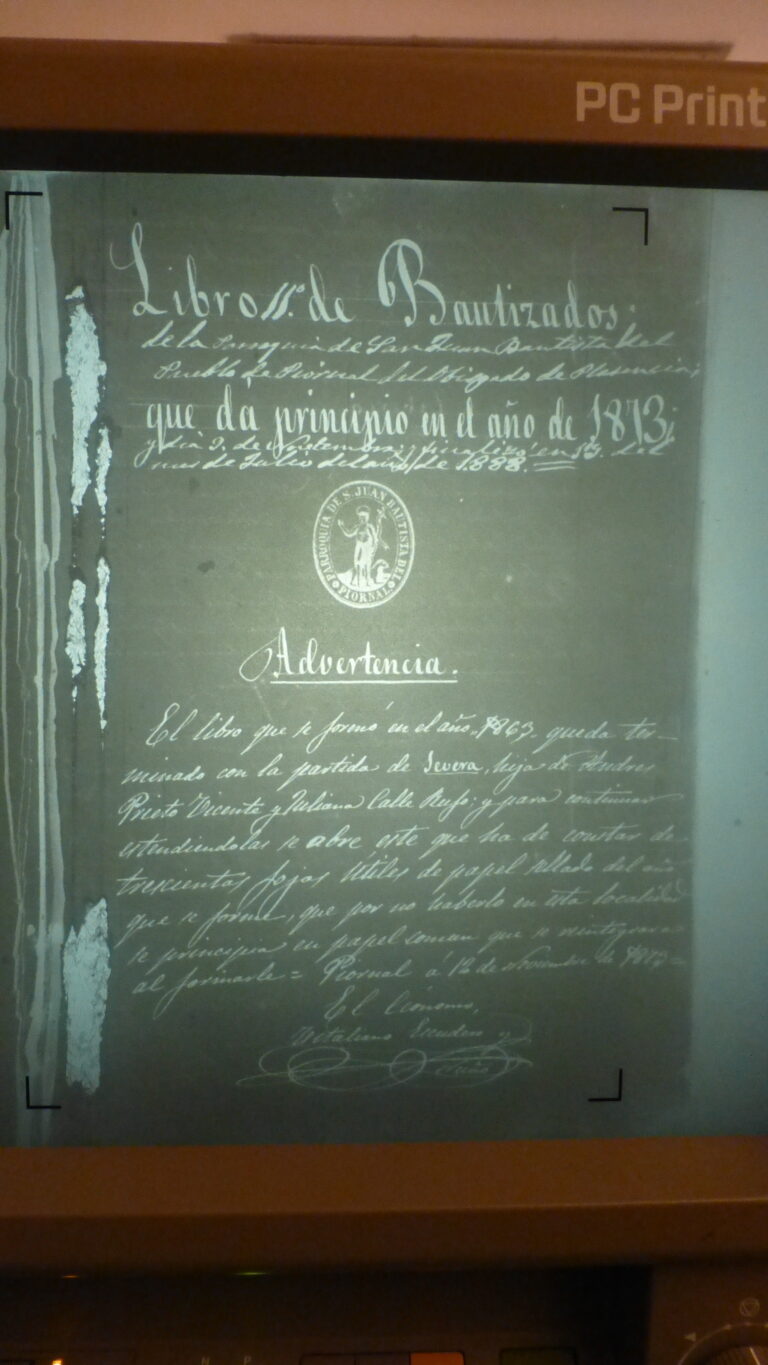 PC Print
Libro 11.º de Bautizados;
de la Parroquia de San Juan Bautista del
Pueblo de Piornal del Obispado de Plasencia;
que dá principio en el año de 1873;
y dia 9. de finalizó en 13. del
mes de Julio del año de 1888.
PARROQUIA DE S. JUAN BAUTISTA DEL
PIORNAL
Advertencia.
El libro que se formó en el año, 1863, queda ter-
minado con la partida de Severa, hija de Andres
Prieto Vicente y Juliana Calle Rufo; y para continuar
estendiendolas se abre este que ha de constar de
trescientas fojas útiles de papel sellado del año
que se forma, que por no haberlo en esta localidad
se principia en papel comun que se reintegrara
al formarle = Piornal á 12 de Noviembre de 1873 =
El Ecónomo,
Vitaliano Escudero y